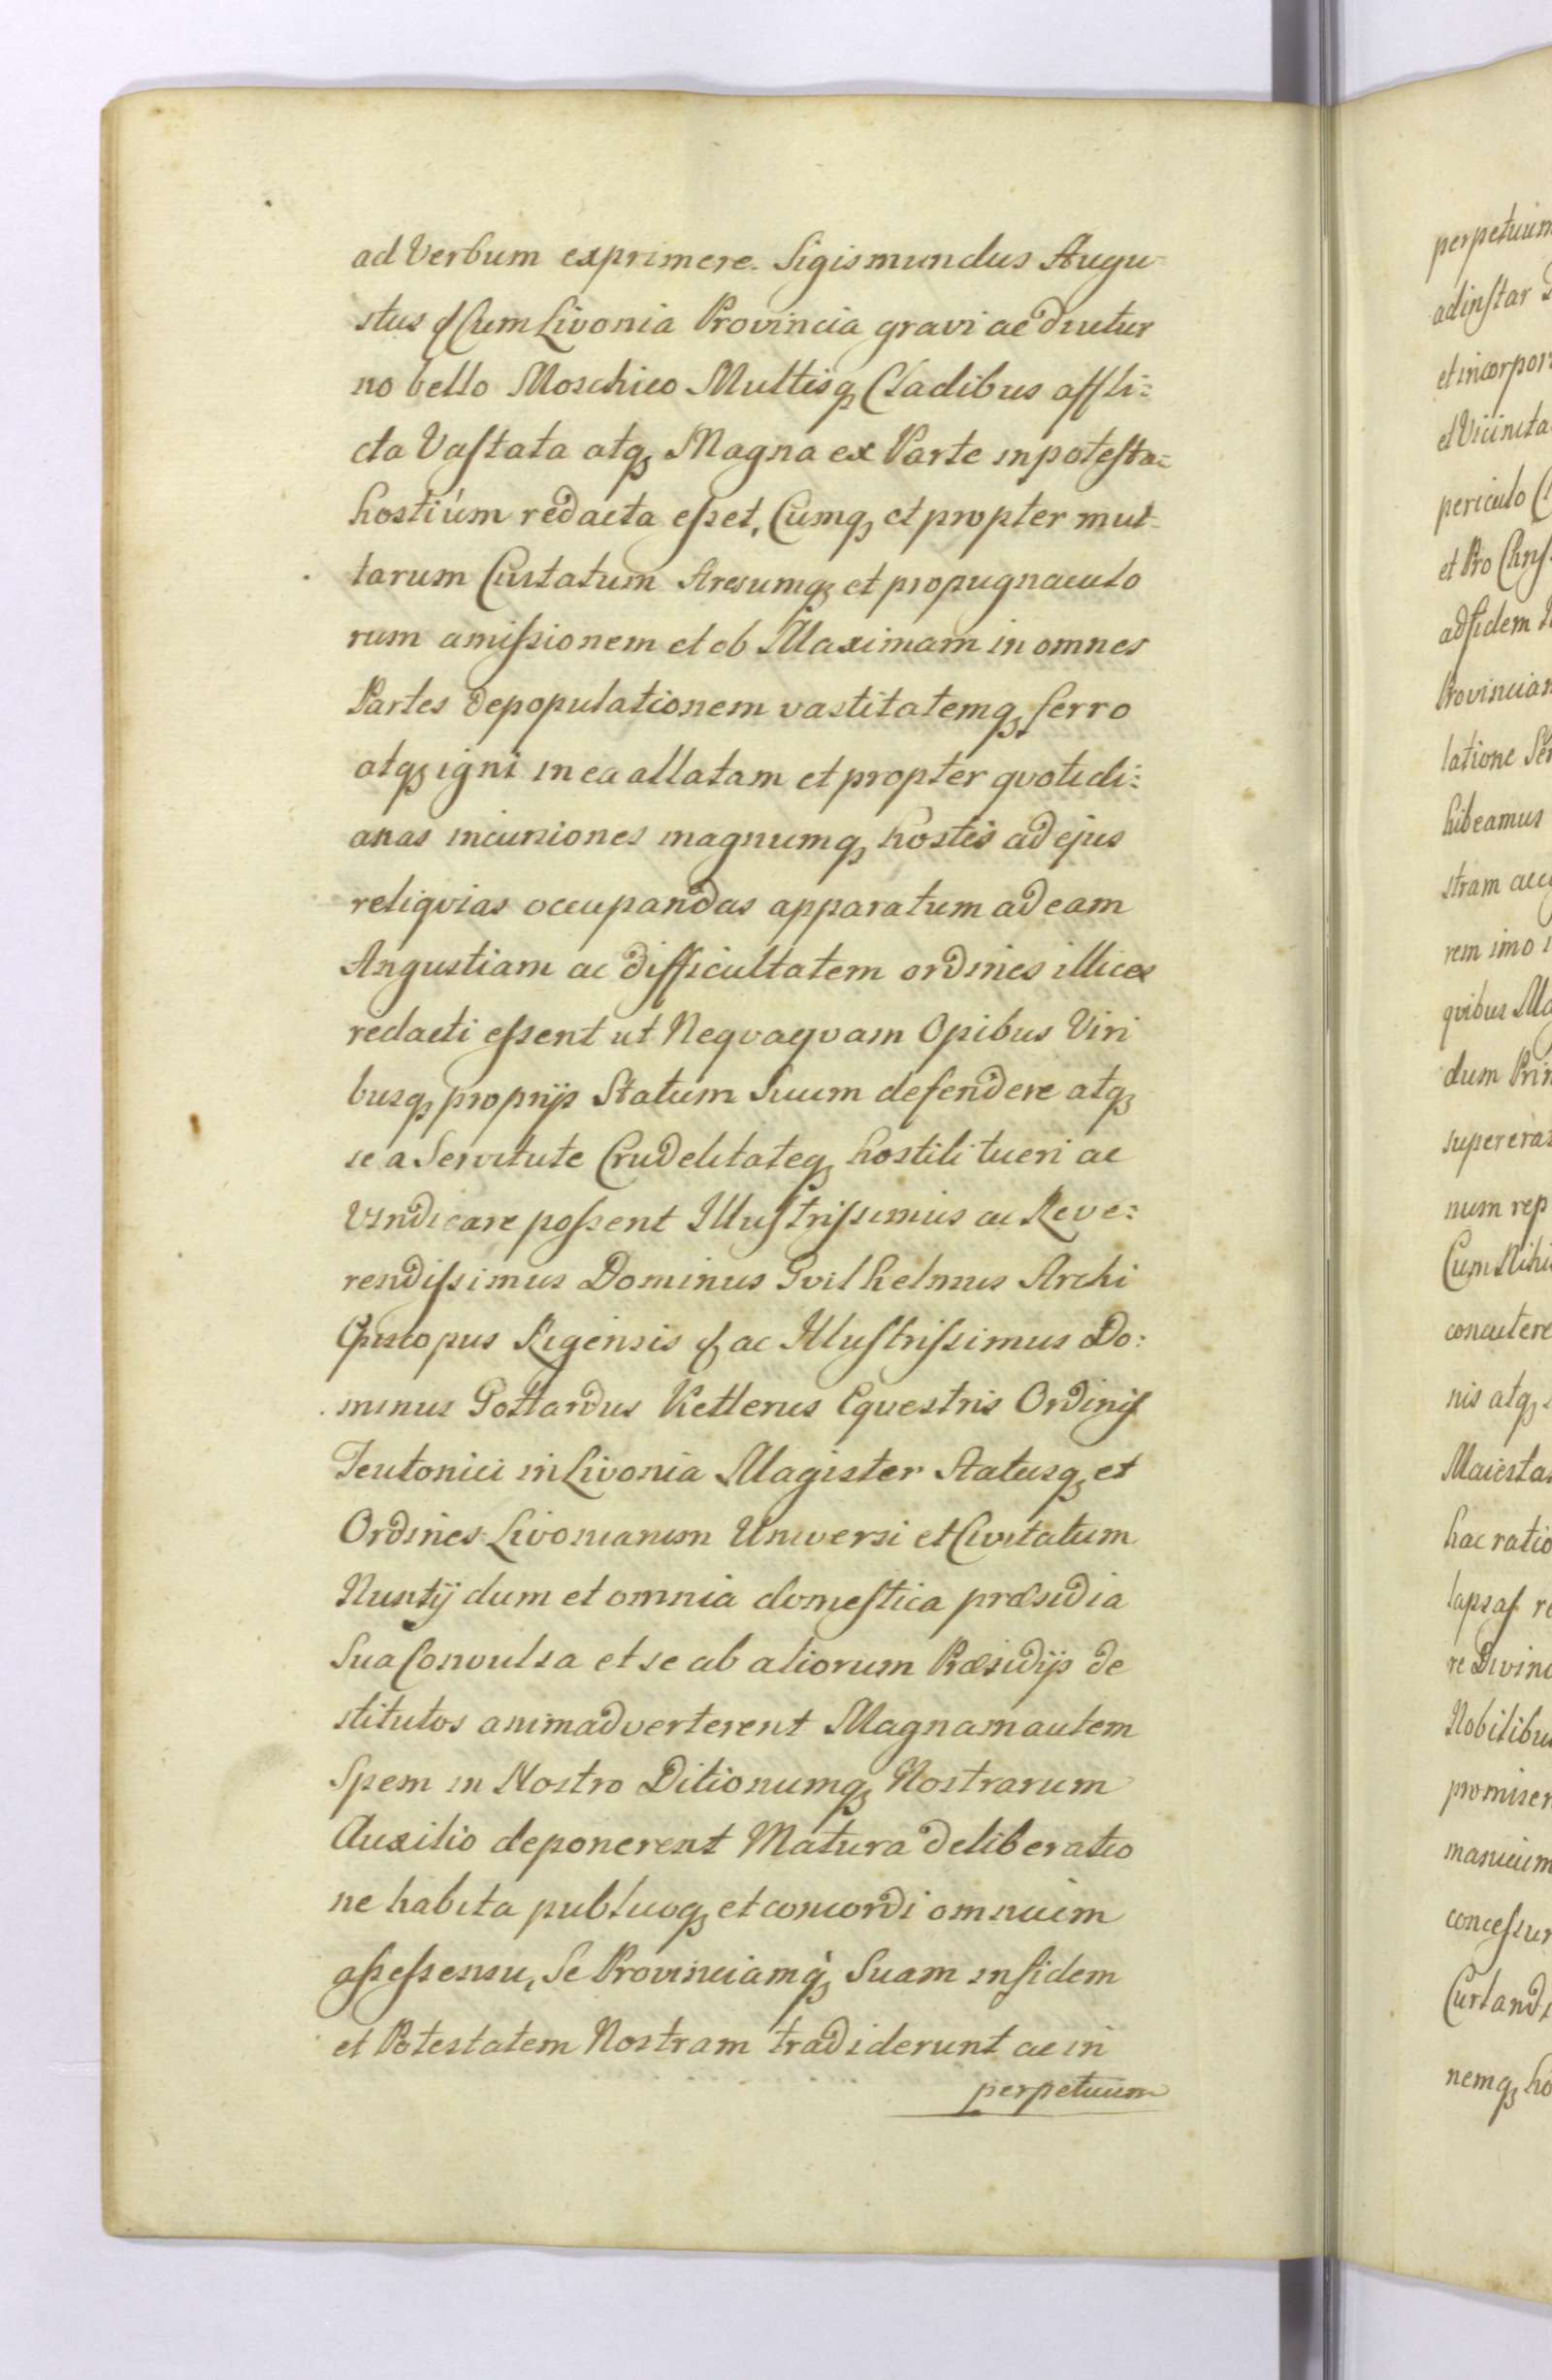 ad Verbum exprimere. Sigismundus Augu-
stus & Cum Livonia Provincia gravi ac diutur
no bello Moschico Multisq, Cladibus affli:
cta Vastata atq, Magna ex Parte in potesta:
hostium redacta esset, Cumq, et propter mul-
tarum Civitatum Arciumq, et propugnaculo
rum amissionem et ob Maximam in omnes
Partes depopulationem vastitatemq, ferro
atq, igni in ea allatam et propter qvotidi:
anas incursiones magnumq, hostis ad ejus
reliqvias occupandas apparatum ad eam
Angustiam ac difficultatem ordines
redacti essent ut Neqvaqvam Opibus Viri
busq, proprijs Statum Suum defendere atq,
se a Servitute Crudelitateq, hostili tueri ac
Vindicare possent Illustrissimus ac Reve:
rendissimus Dominus Gvilhelmus Archi
Episcopus Rigensis & ac Illustrissimus Do:
minus Gottardus Ketlerus Eqvestris Ordinis
Teutonici in Livonia Magister Statusq, et
Ordines Livonianum Universi et Civitatum
Nuntij dum et omnia domestica præsidia
Sua Convulsa et se ab aliorum Præsidijs de
stitutos animadverterent Magnam autem
Spem in Nostro Ditionumq, Nostrarum
Auxilio deponerent Matura deliberatio
ne habita publicoq, et concordi omnium
assessensu, Se Provinciamq, Suam in fidem
et Potestatem Nostram tradiderunt ac in
perpetuum
perpetuum
adinstar
et incorpor
et Vicinita
periculo
et Pro Chris
ad fidem
Provinciam
latione
hibeamus
stram
rem imo
qvibus Ma
dum Prin
supererat
num rep
Cum Nihi
concutere
nis atq,
Maiesta
hac ratio
lapsas re
re Divin
Nobilibus
promiser
manuum
concessur
Curlandi
nemq, ho